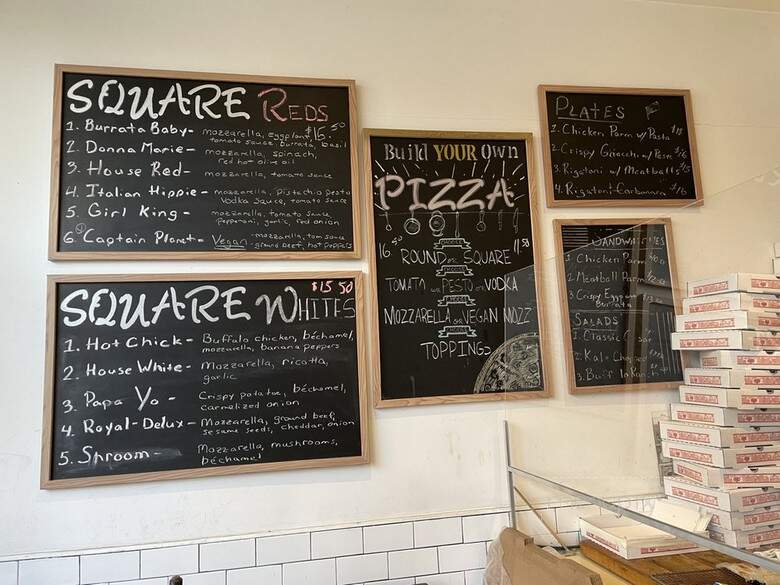 SQUARE REDS
$15.50
1. Burrata Baby - mozzarella, eggplant,
tomato sauce, burrata, basil
2. Donna Marie - mozzarella, spinach,
red hot olive oil
3. House Red - mozzarella, tomato sauce
4. Italian Hippie - mozzarella, pistachio pesto
vodka sauce, tomato sauce
5. Girl King - mozzarella, tomato sauce,
pepperoni, garlic, red onion
6. Captain Planet - Vegan - mozzarella, tom sauce
ground beef, hot peppers
SQUARE WHITES
$15.50
1. Hot Chick - Buffalo chicken, béchamel,
mozzarella, banana peppers
2. House White - Mozzarella, ricotta,
garlic
3. Papa Yo - Crispy potatoe, béchamel,
carmelized onion
4. Royal-Delux - Mozzarella, ground beef,
sesame seeds, cheddar, onion
5. Shroom - Mozzarella, mushrooms,
béchamel
Build YOUR Own
PIZZA
CHOOSE
16.50 ROUND or SQUARE
CHOOSE
TOMATO or PESTO or VODKA
CHOOSE
MOZZARELLA or VEGAN MOZZ
CHOOSE
TOPPINGS
PLATES
1. Chicken Parm w/ Pasta
2. Crispy Gnocchi w/
3. Rigatoni w/ Meatball
4. Rigatoni Carbonara
SANDWICHES
1. Chicken Parm
2. Meatball Parm
3. Crispy
Burrata
SALADS
1. Classic
2. Kale
3.